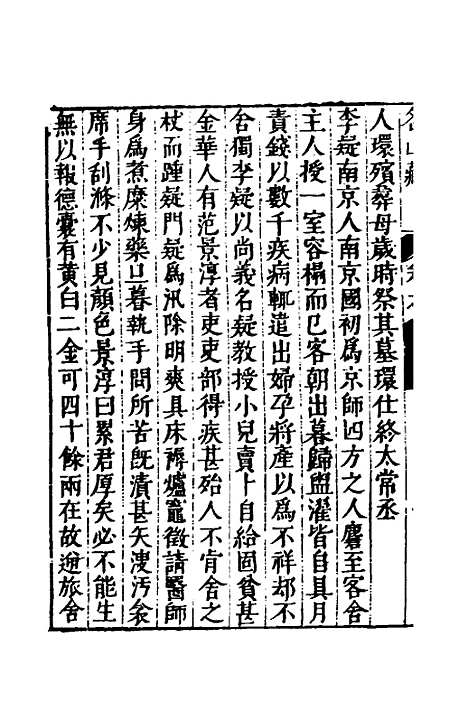 名山藏
人環殯葬母歲時祭其墓環仕終太常丞
李疑南京人南京國初爲京師四方之人麕至客舍
主人授一室容榻而已客朝出暮歸盥濯皆自具月
責錢以數千疾病輒遣出婦孕將產以爲不祥却不
舍獨李疑以尚義名疑教授小兒賣卜自給固貧甚
金華人有范景淳者吏吏部得疾甚殆人不肯舍之
杖而踵疑門疑爲汛除明爽具床褥爐竈徵請醫師
身爲煮糜煉藥旦暮執手問所苦旣潰甚矢溲汚衾
席手刮滌不少見顏色景淳曰累君厚矣必不能生
無以報德囊有黄白二金可四十餘兩在故逆旅舍